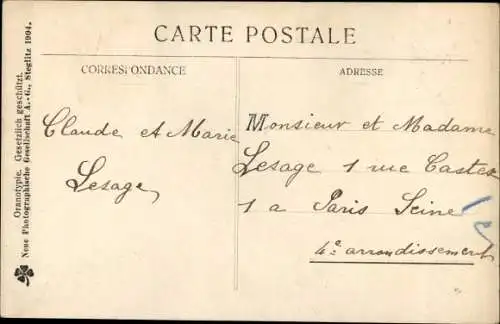 CARTE POSTALE
CORRESPONDANCE
ADRESSE
Claude et Marie
Lesage
Monsieur et Madame
Lesage 1 rue Castex
1 a Paris Seine
4e arrondissement
Oranotypie. Gesetzlich geschützt.
Neue Photographische Gesellschaft A.-G., Steglitz 1904.